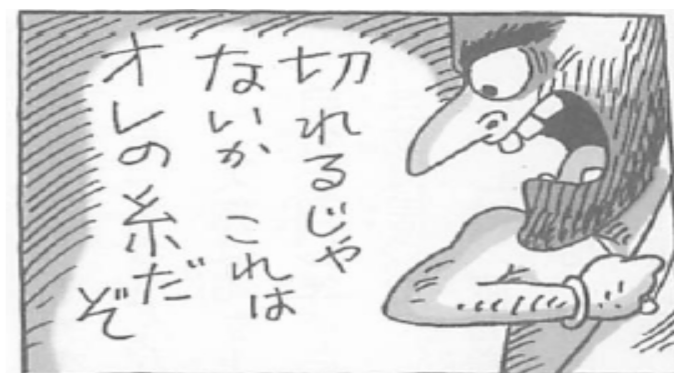 切れるじゃ
ないか これは
オレの糸だ
ぞ